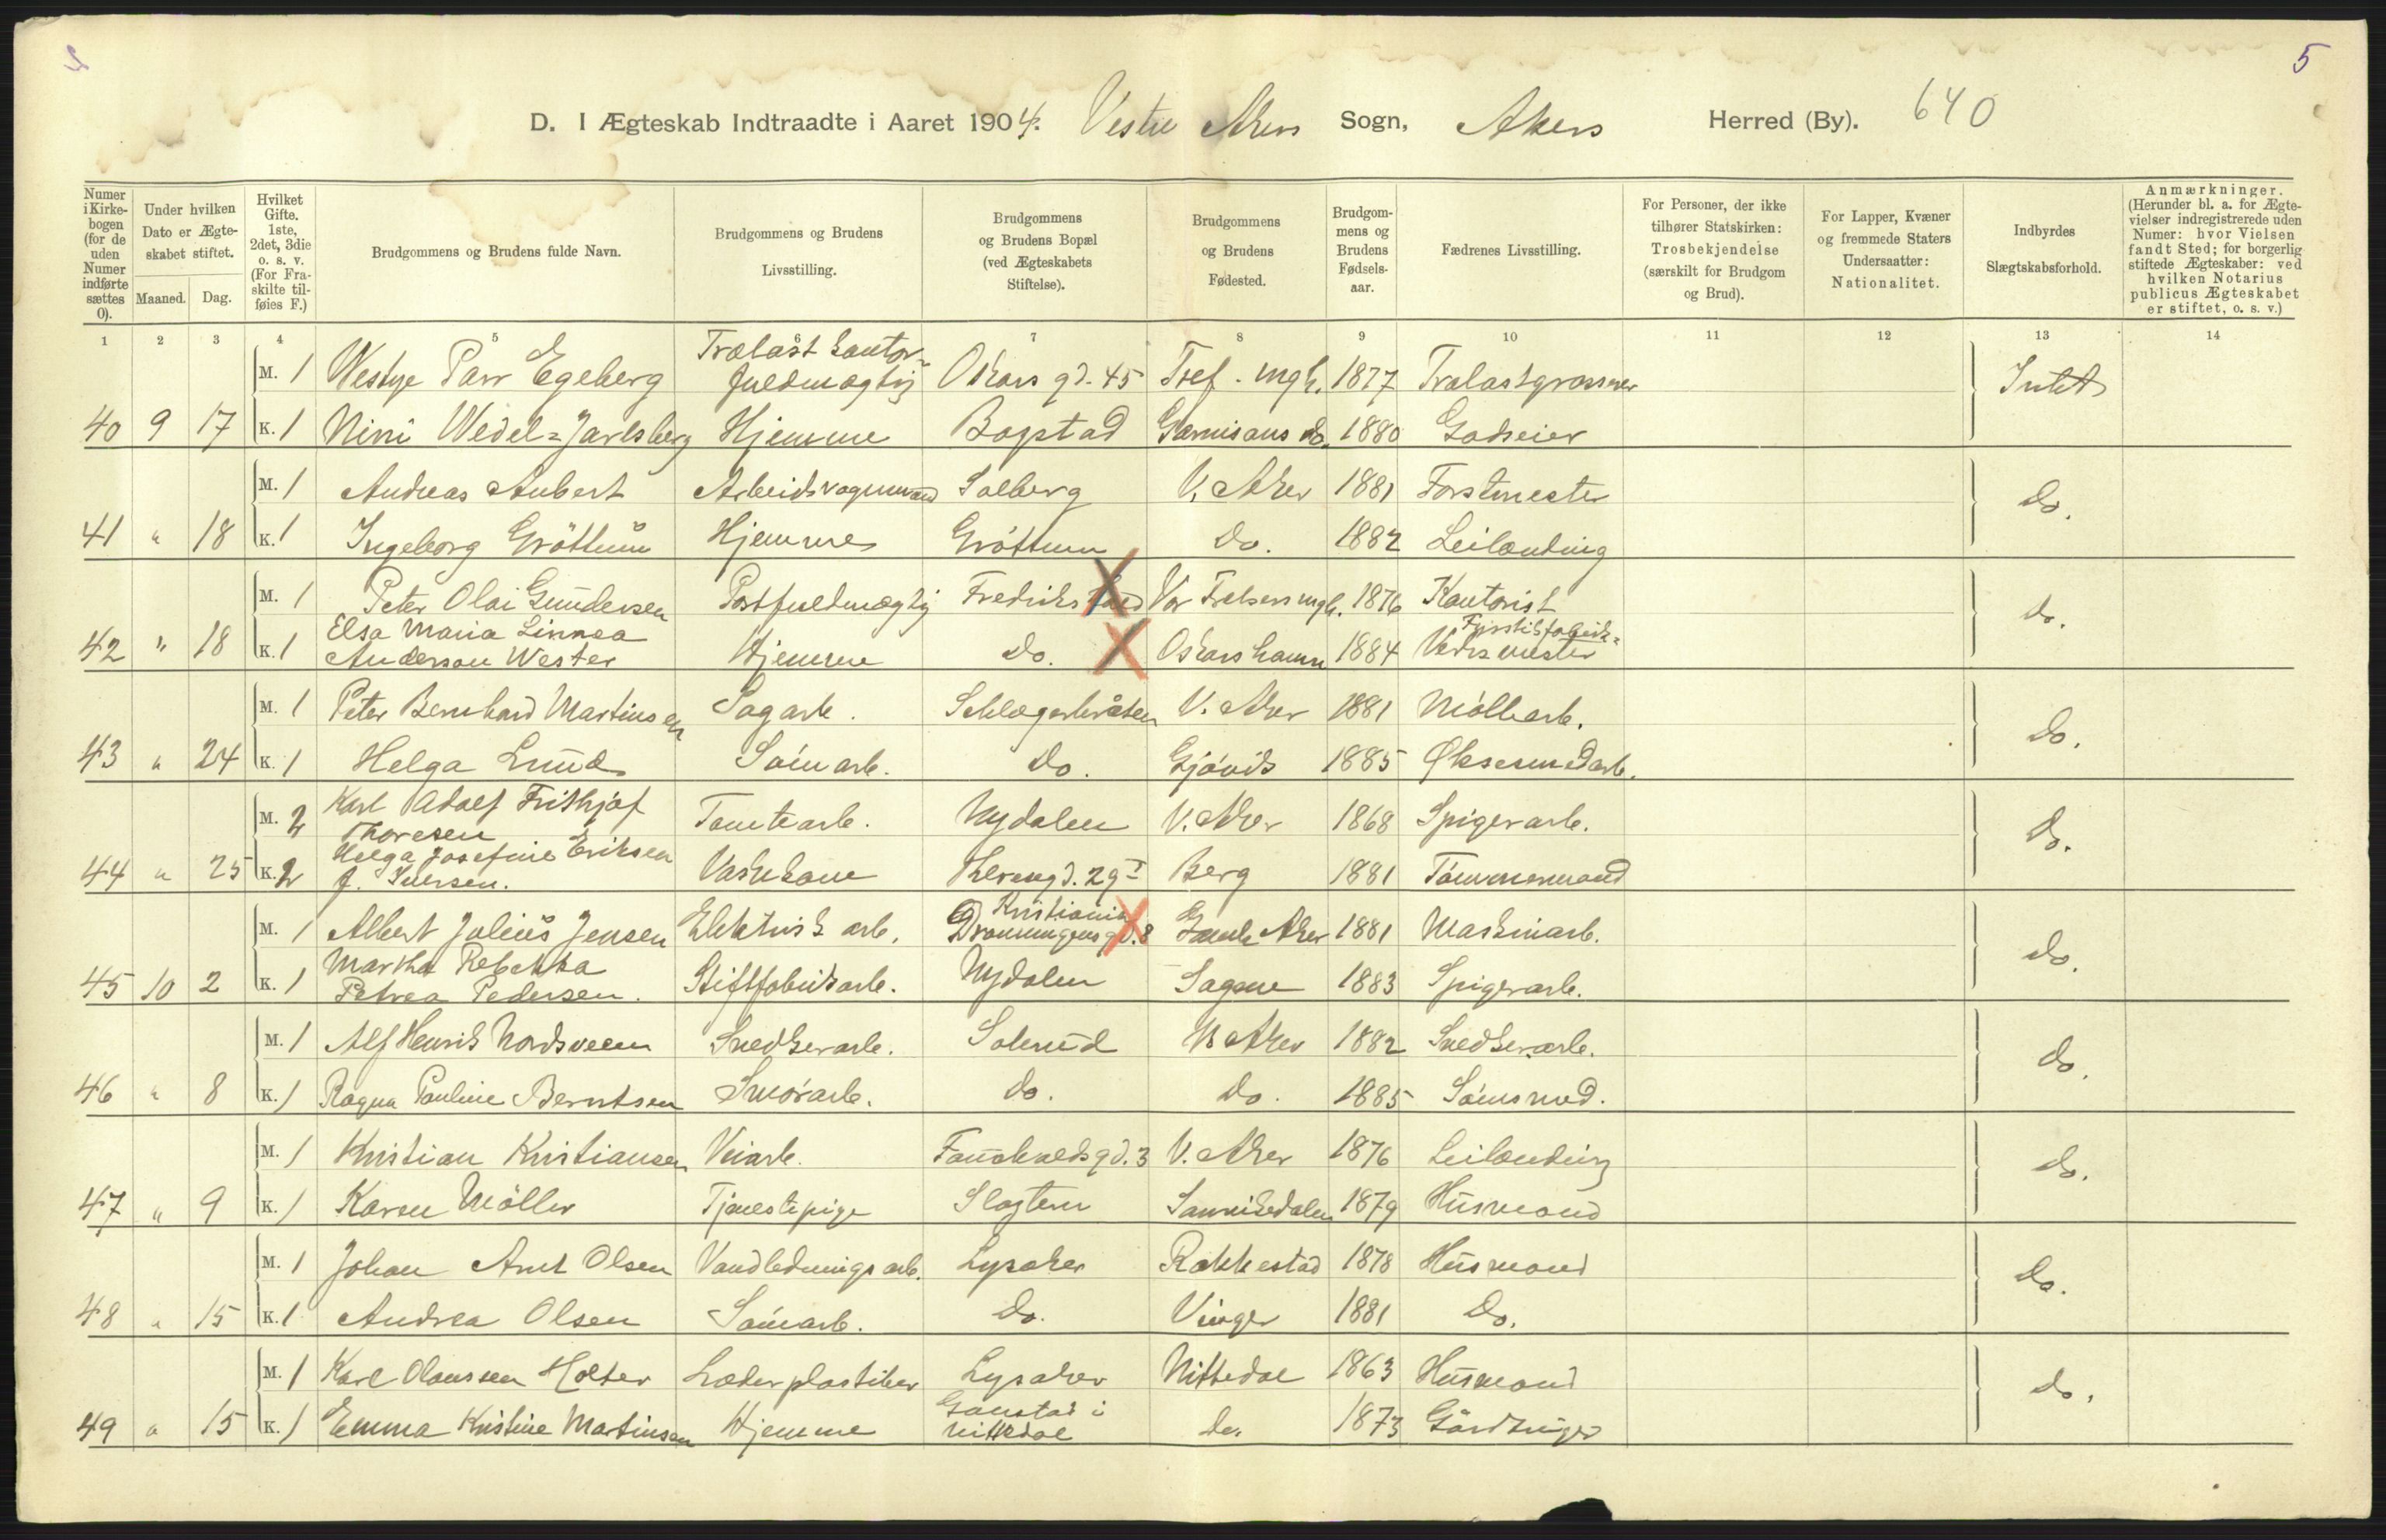 5
D. I Ægteskab Indtraadte i Aaret 1904. Vestre Akers Sogn, Akers Herred (By). 640
Numer i Kirkebogen (for de uden Numer indførte sættes 0).
Under hvilken Dato er Ægteskabet stiftet.
Maaned. Dag.
Hvilket Gifte. 1ste, 2det, 3die o. s. v. (For Fraskilte tilføies F.)
Brudgommens og Brudens fulde Navn.
Brudgommens og Brudens Livsstilling.
Brudgommens og Brudens Bopæl (ved Ægteskabets Stiftelse).
Brudgommens og Brudens Fødested.
Brudgommens og Brudens Fødselsaar.
Fædrenes Livsstilling.
For Personer, der ikke tilhører Statskirken: Trosbekjendelse (særskilt for Brudgom og Brud).
For Lapper, Kvæner og fremmede Staters Undersaatter: Nationalitet.
Indbyrdes Slægtskabsforhold.
Anmærkninger. (Herunder bl. a. for Ægtevielser indregistrerede uden Numer: hvor Vielsen fandt Sted; for borgerlig stiftede Ægteskaber: ved hvilken Notarius publicus Ægteskabet er stiftet, o. s. v.)
1 2 3 4 5 6 7 8 9 10 11 12 13 14
M. 1 Westye Parr Egeberg Trælast kontorfuldmægtig Oskars gd. 45 Tref. mgh. 1877 Trælastgrosserer Intet
40 9 17 K. 1 Nini Wedel=Jarlsberg Hjemme Bogstad Garnisons do. 1880 Godseier
M. 1 Andreas Aubert Arbeidsvognmand Solberg V. Aker 1881 Forstmester do.
41 " 18 K. 1 Ingeborg Gröttum Hjemme Gröttum do. 1882 Leilænding
M. 1 Peter Olai Gundersen Postfuldmægtig Fredriksstad Vor Frelsers mgh. 1876 Kontorist do.
42 " 18 K. 1 Elsa Maria Linnea Anderson Wester Hjemme do. Oskarshamn 1884 Fyrstikfabrik= Verksmester
M. 1 Peter Bernhard Martinsen Sagarb. V. Aker 1881 Möllearb. do.
43 " 24 K. 1 Helga Lund Sömarb. do. Gjövik 1885 Øksesmedarb.
M. 2 Karl Adolf Frithjof Thoresen Tomtearb. Nydalen V. Aker 1868 Spigerarb. do.
44 " 25 K. 2 Helga Josefine Eriksen f. Iversen. Vaskekone Berg 1881 Tömmermand
M. 1 Albert Julius Jensen Elektrisk arb. Kristiania Dronningensgd. 8 Gamle Aker 1881 Maskinarb. do.
45 10 2 K. 1 Martha Rebekka Petrea Pedersen. Stiftfabrikarb. Nydalen Sagene 1883 Spigerarb.
M. 1 Alf Henrik Nordsveen Snedkerarb. Solerud V Aker 1882 Snedkerarb. do.
46 " 8 K. 1 Ragna Pauline Berntsen Smörarb. do. do. 1885 Sömsmed.
M. 1 Kristian Kristiansen Veiarb. Fauchaldsgd. 3 V. Aker 1876 Leilænding do.
47 " 9 K. 1 Karen Möller Tjenestepige Slagtern Sannikedalen 1879 Husmand
M. 1 Johan Amt Olsen Vandledningsarb. Lysaker Rakkestad 1878 Husmand do.
48 " 15 K. 1 Andrea Olsen Sömarb. do. Vinger 1881 Do.
M. 1 Karl Olaussen Holter Læderplastiker Lysaker Nittedal 1863 Husmand do.
49 " 15 K. 1 Emma Kristine Martinsen Hjemme Gaustad i Nittedal do. 1873 Gårdbruger